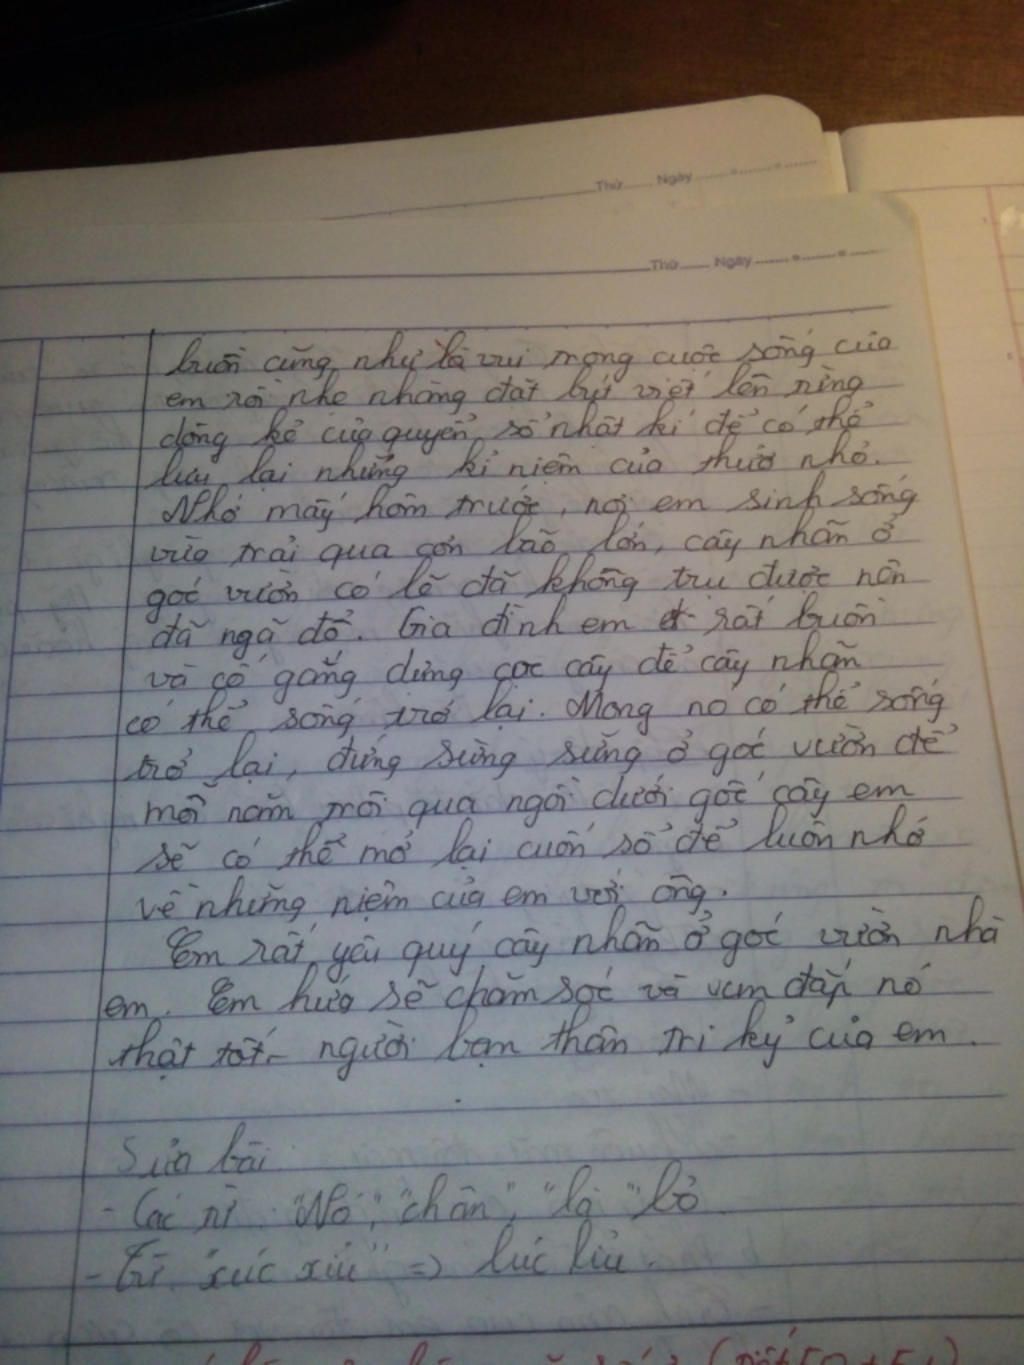 Thứ Ngày
Thứ Ngày
buồn cũng như là vui trong cuộc sống của
em rồi nhẹ nhàng đặt bút viết lên từng
dòng kẻ của quyển sổ nhật kí để có thể
lưu lại những kỉ niệm của thuở nhỏ.
Nhớ mấy hôm trước, nơi em sinh sống
vừa trải qua cơn bão lớn, cây nhãn ở
góc vườn có lẽ đã không trụ được nên
đã ngã đổ. Gia đình em rất buồn
và cố gắng dựng cọc cây để cây nhãn
có thể sống trở lại. Mong nó có thể sống
trở lại, đứng sừng sững ở góc vườn để
mỗi năm trôi qua ngồi dưới gốc cây em
sẽ có thể mở lại cuốn sổ để luôn nhớ
về những niệm của em với ông.
Em rất yêu quý cây nhãn ở góc vườn nhà
em. Em hứa sẽ chăm sóc và vun đắp nó
thật tốt - người bạn thân tri kỷ của em.
Sửa bài
- Các từ "Nó", "chân", "lá" bỏ
- Từ "xúc xíu" => lúc lỉu.